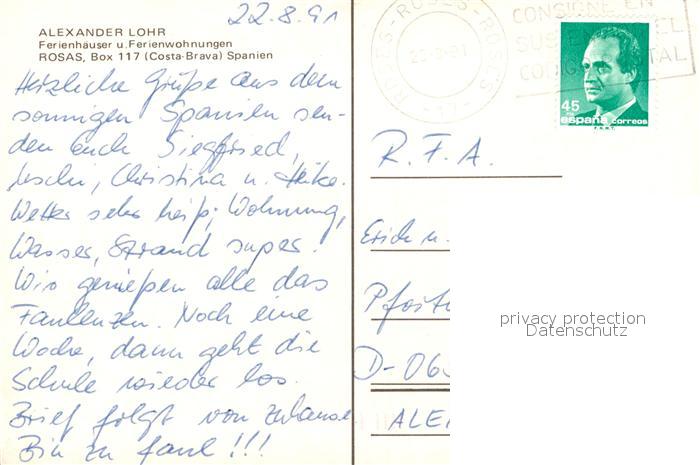 22.8.91
ALEXANDER LOHR
Ferienhäuser u. Ferienwohnungen
ROSAS, Box 117 (Costa-Brava) Spanien
Herzliche Grüße aus dem
sonnigen Spanien sen-
den euch Siegfried,
Uschi, Christina u. Heike.
Wetter sehr heiß; Wohnung,
Wasser, Strand super.
Wir genießen alle das
Faulenzen. Noch eine
Woche, dann geht die
Schule wieder los.
Brief folgt von zuhause
Bin zu faul !!!
ROSES-ROSES-ROSES
CONSIGNE EN
CODIGO POSTAL
45
españa correos
F.N.M.T.
R.F.A.
Erich u.
D-06
ALE
privacy protection
Datenschutz